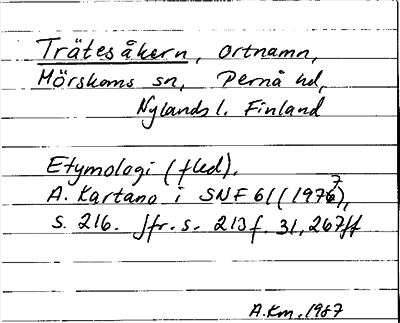 Trätesåkern, ortnamn,
Mörskoms sn, Pernå hd,
Nylands l. Finland
Etymologi (fled).
A. Kartano i SNF 61 (1977),
s. 216. Jfr. s. 213 f. 31, 267 ff
A.Km. 1987